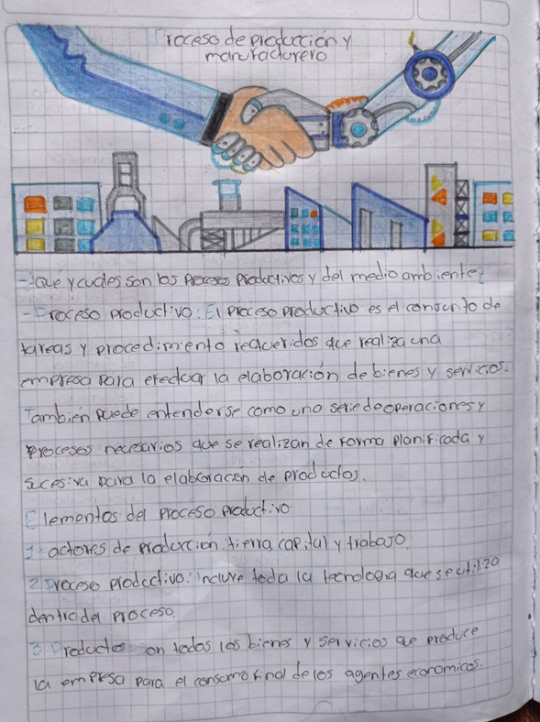 Proceso de producción y
manufacturero
-¿Qué y cuales son los procesos Productivos y del medio ambiente?
-Proceso productivo: El proceso productivo es el conjunto de
tareas y procedimiento requeridos que realiza una
empresa para efectuar la elaboración de bienes y servicios.
También puede entenderse como una serie de operaciones y
procesos necesarios que se realizan de forma planificada y
sucesiva para la elaboración de productos.
Elementos del proceso productivo
1 Factores de producción: tierra, capital y trabajo.
2. Proceso productivo: Incluye toda la tecnologia que se utiliza
dentro del proceso.
3 Productos son todos los bienes y servicios que produce
la empresa para el consumo final de los agentes economicos.